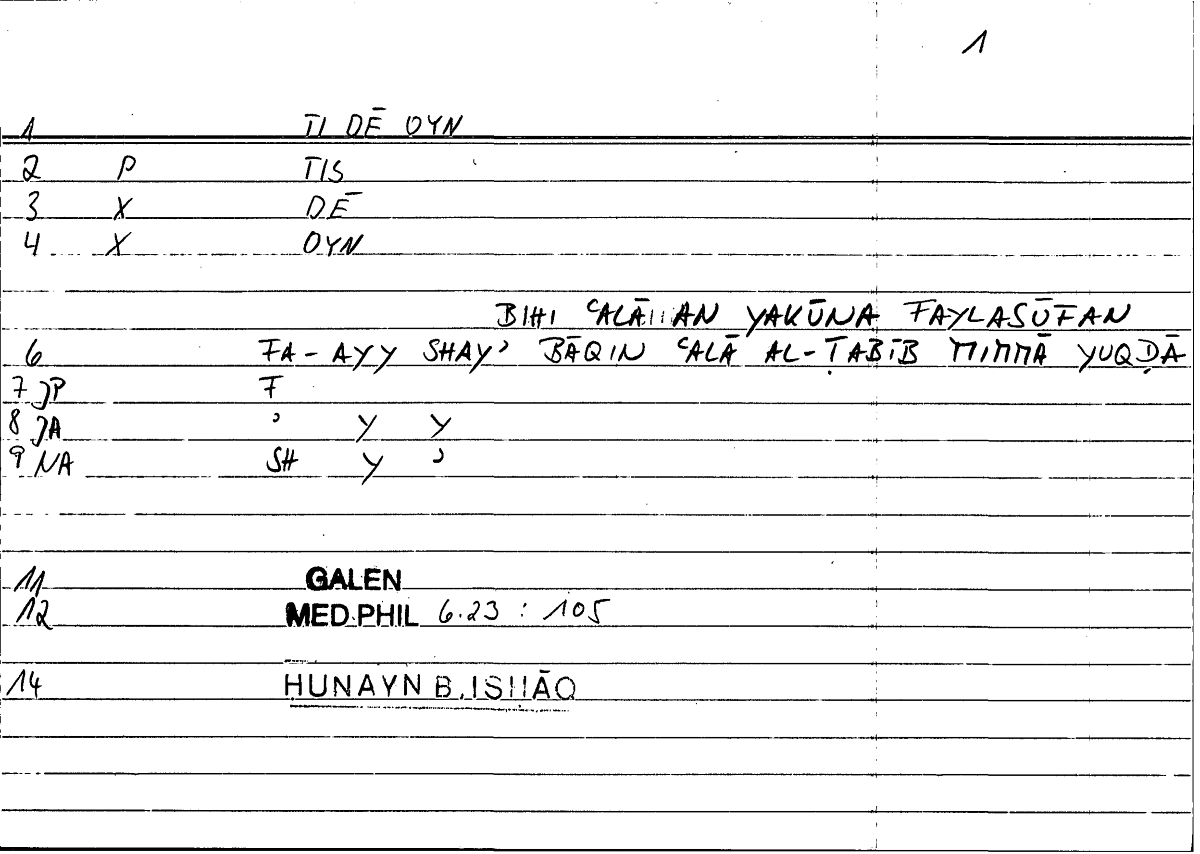 1
1 TI DĒ OYN
2 P TIS
3 X DĒ
4 X OYN
BIHI ʿALĀ AN YAKŪNA FAYLASŪFAN
6 FA-AYY SHAYʾ BĀQIN ʿALĀ AL-ṬABĪB MIMMĀ YUQḌĀ
7 JP F
8 JA ʾ Y Y
9 NA SH Y ʾ
11 GALEN
12 MED.PHIL 6.23 : 105
14 HUNAYN B. ISHĀQ